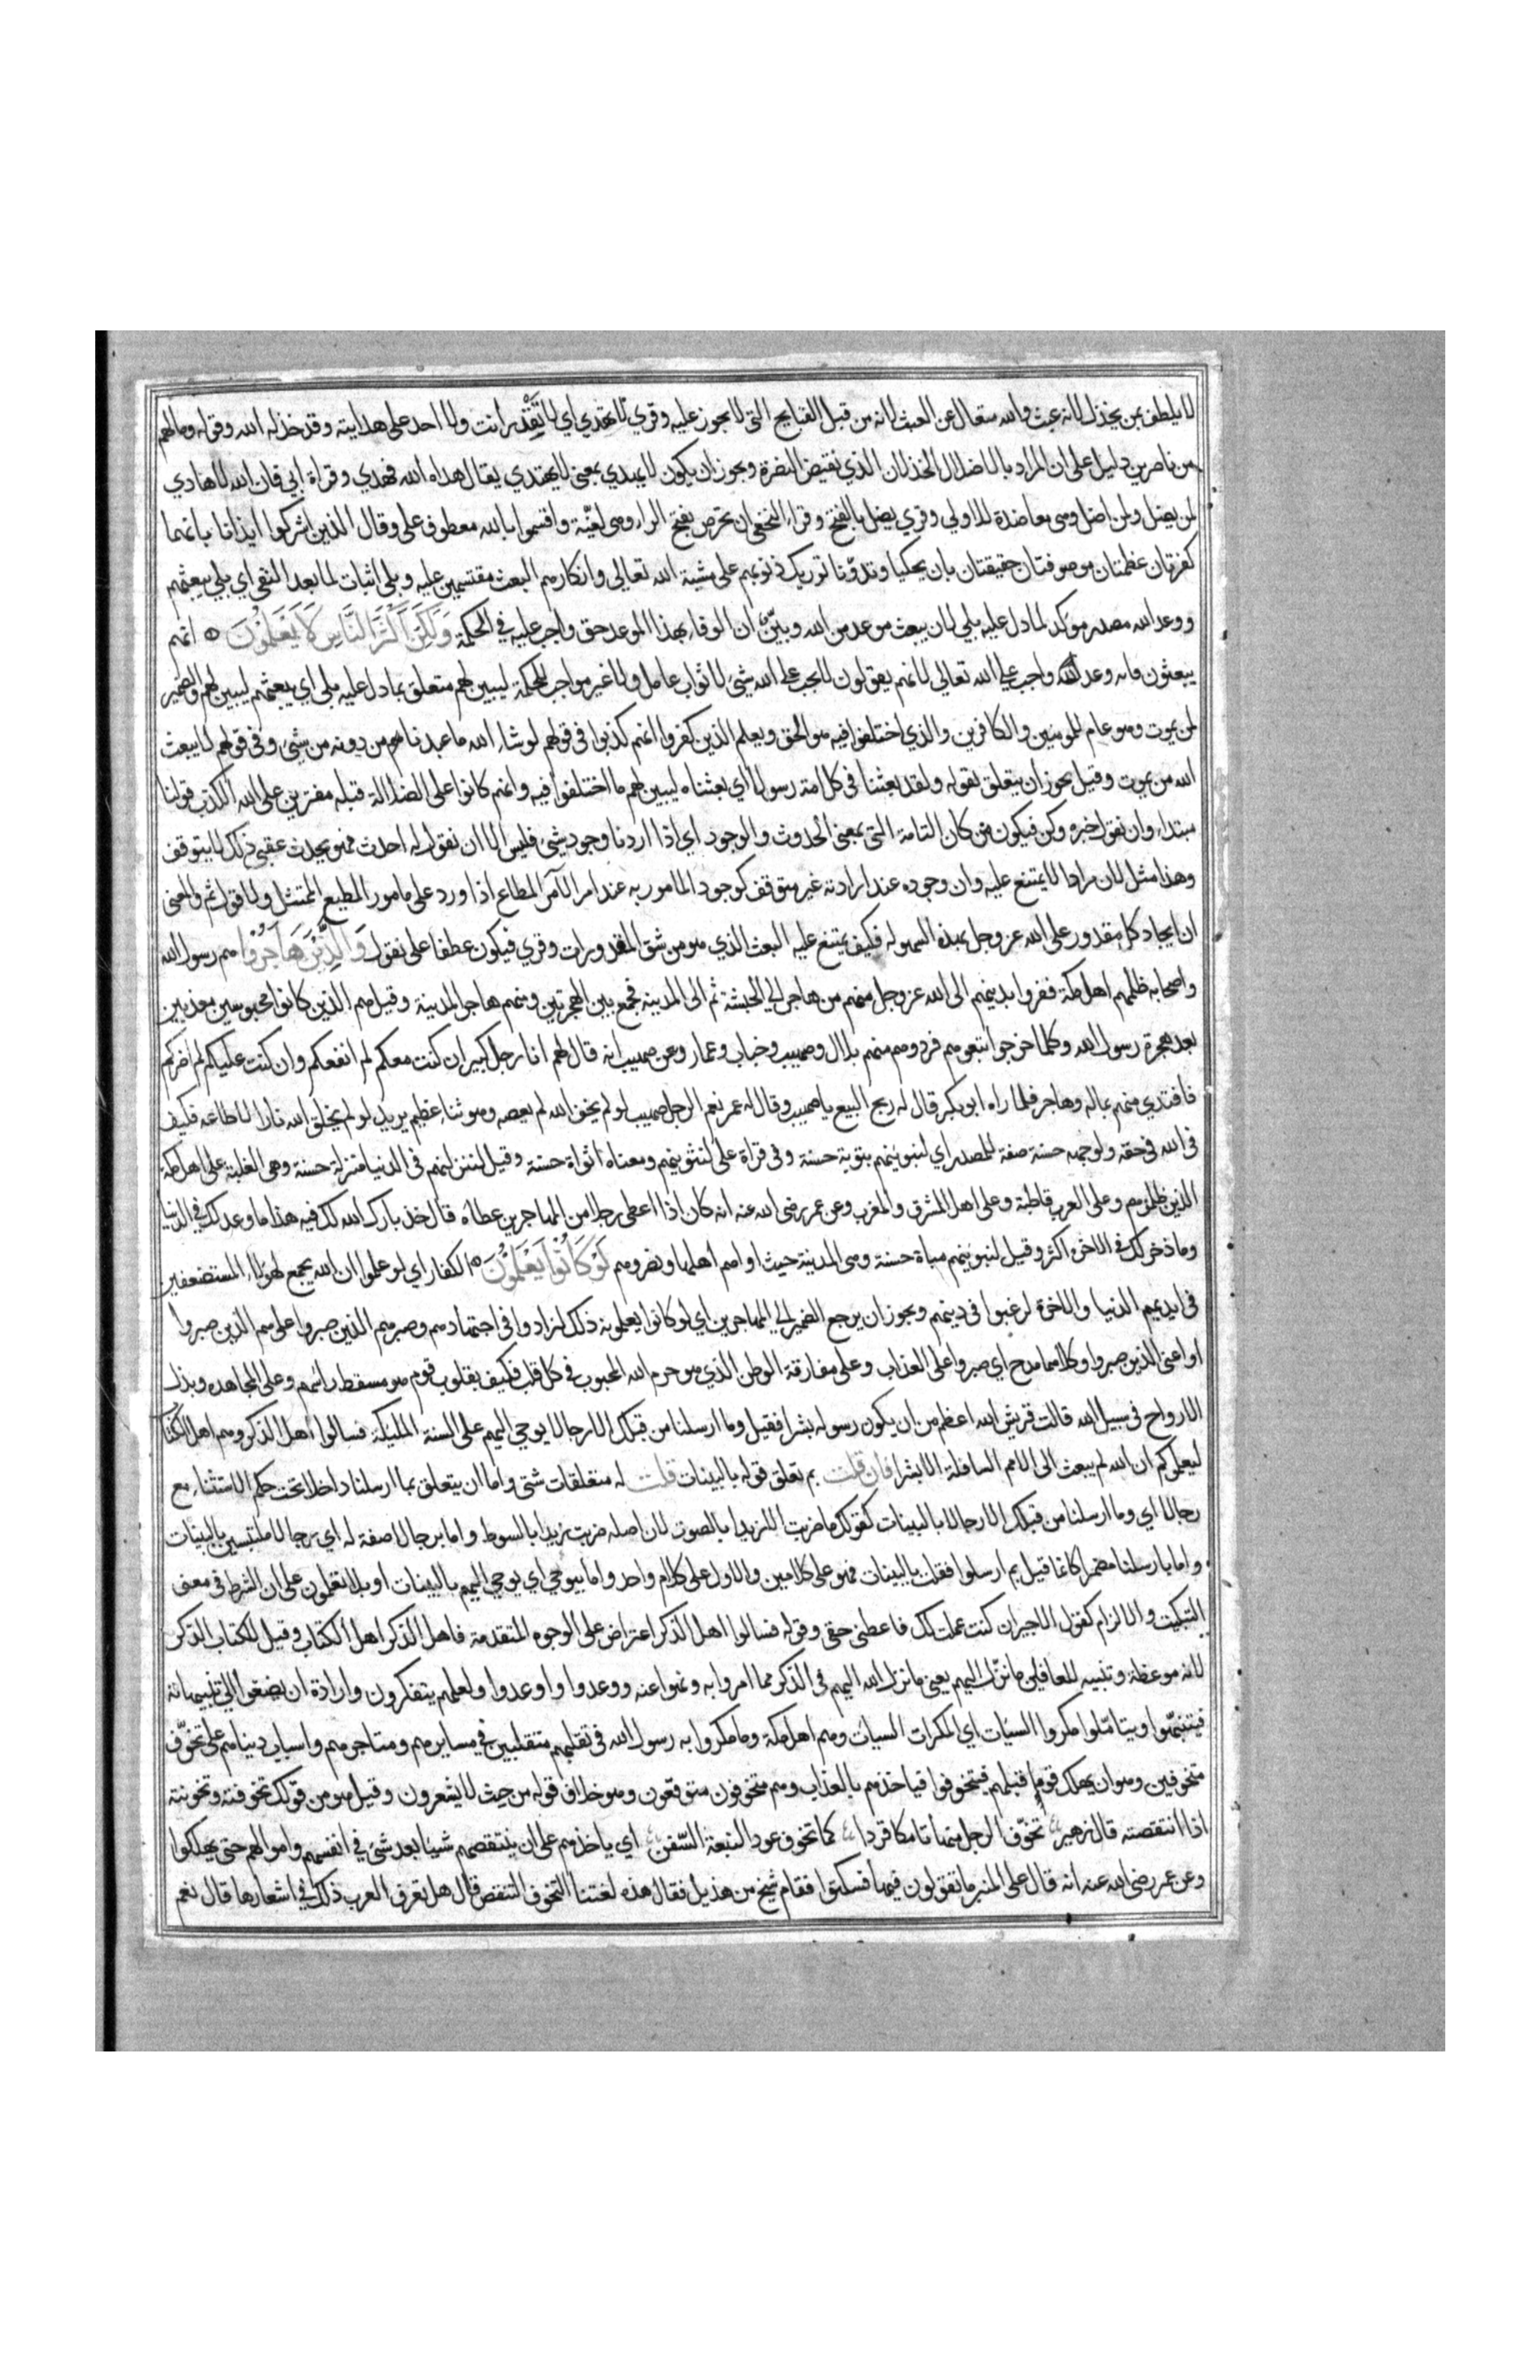 لا يلطف بمن يخذل لانه عبث والله متعال عن العبث لانه من قبل القبايح التى لا يجوز عليه وقري لا يهتدي اي لا تقدر انت ولا احد على هدايته وقد خذله الله وقوله وما لهم
من ناصرين دليل على ان المراد بالاضلال الخذلان الذي نقيض النصرة ويجوز ان يكون لا يهدي بمعنى لا يهتدي يقال هداه الله فهدي وقراة ابي فان الله لا هادي
لمن يضل ولمن اضل وهى معاضدة للاولي وقري يضل بالفتح وقراء النخعي ان تحرص بفتح الراء وهى لغيّة واقسموا بالله معطوف على وقال الذين اشركوا ايذانا بانهما
كفرتان عظمتان موصوفتان حقيقتان بان يحكيا وتدوّنا توريك ذنوبهم على مشية الله تعالي وانكارهم البعث مقتسمين عليه وبلى اثبات لما بعد النفى اي بلي يبعثهم
ووعد الله مصدر موكد لما دل عليه بلي لان يبعث موعد من الله وبيّن ان الوفاء بهذا الموعد حق واجب عليه في الحكمة وَلَكِنَّ أَكْثَرَ النَّاسِ لَا يَعْلَمُوْنَ انهم
يبعثون وانه وعد الله واجب علي الله تعالي لانهم يقولون لا يجب على الله شيئ لا ثواب عامل ولا غير مواجب الحكمة ليبين لهم متعلق بما دل عليه بلى اي يبعثهم ليبين لهم والضمير
لمن يموت وهو عام للمومنين والكافرين والذي اختلفوا فيه هو الحق ويعلم الذين كفروا انهم كذبوا في قولهم لو شاء الله ما عبدنا من دونه من شيئ وفى قولهم لا يبعث
الله من يموت وقيل يجوز ان يتعلق بقوله ولقد بعثنا في كل امة رسولا اي بعثناه ليبين لهم ما اختلفوا فيه وانهم كانوا على الضلالة قبله مفترين على الله الكذب قولنا
مبتداء وان نقول خبره وكن فيكون من كان التامة التى بمعنى الحدوث والوجود اي اذا اردنا وجود شيئ فليس الا ان نقول له احدث فهو يحدث عقيب ذلك لا يتوقف
وهذا مثل لان مرادا لا يمتنع عليه وان وجوده عند ارادته غير متوقف كوجود المامور به عند امر الآمر المطاع اذا ورد على مامور المطيع الممتثل ولا قول ثم والمعنى
ان ايجاد كل مقدور على الله عز وجل بهذه السهولة فكيف يمتنع عليه البعث الذي هو من شق المقدورات وقري فيكون عطفا على نقول وَالَّذِيْنَ هَاجَرُوْا هم رسول الله
واصحابه ظلمهم اهل مكة ففروا بدينهم الى الله عز وجل منهم من هاجر الي الحبشة ثم الى المدينة فجمع بين الهجرتين ومنهم هاجر المدينة وقيل هم الذين كانوا محبوسين معذبين
بعد هجرة رسول الله وكلما خرجوا تبعوهم فردوهم منهم بلال وصهيب وخباب وعمار وعن صهيب انه قال لهم انا رجل كبير ان كنت معكم لم انفعكم وان كنت عليكم لم اضركم
فافتدي منهم بماله وهاجر فلما راه ابو بكر قال له ربح البيع يا صهيب وقال له عمر نعم الرجل صهيب لو لم يخف الله لم يعصه وهو ثناء عظيم يريد لو لم يخلق الله نارا لاطاعه فكيف
فى الله فى حقه ولوجهه حسنة صفة للمصدر اي لنبوينهم بتوية حسنة وفى قراة على لنثوينهم ومعناه اثواة حسنة وقيل لننزلنهم في الدنيا منزلة حسنة وهى الغلبة على اهل مكة
الذين ظلموهم وعلى العرب قاطبة وعلى اهل المشرق والمغرب وعن عمر رضى الله عنه انه كان اذا اعطى رجلا من المهاجرين عطاءه قال خذ بارك الله لك فيه هذا ما وعدك في الدنيا
وما ذخر لك في الاخرة اكثر وقيل لنبوينهم مباة حسنة وهى المدينة حيث اواهم اهلها ونصروهم لَوْ كَانُوْا يَعْلَمُوْنَ الكفار اي لو علموا ان الله يجمع لهؤلاء المستضعفين
فى ايديهم الدنيا والاخرة لرغبوا فى دينهم ويجوز ان يرجع الضمير الي المهاجرين اي لو كانوا يعلمونه ذلك لزادوا في اجتهادهم وصبرهم الذين صبروا على هم الذين صبروا
او اعنى الذين صبروا وكلاهما مدح اي صبروا على العذاب وعلى مفارقة الوطن الذي هو حرم الله المحبوب في كل قلب فكيف بقلوب قوم هو مسقط راسهم وعلى المجاهده وبذل
الارواح فى سبيل الله قالت قريش الله اعظم من ان يكون رسوله بشرا فقيل وما ارسلنا من قبلك الا رجالا يوحي اليهم على السنة الملئكة فسالوا اهل الذكر وهم اهل الكتاب
ليعلموكم ان الله لم يبعث الى الامم السافلة الا بشرا فان قلت بم تعلق قوله بالبينات قلت له متعلقات شتى واما ان يتعلق بما ارسلنا داخلا تحت حكم الاستثناء مع
رجالا اي وما ارسلنا من قبلك الا رجالا بالبينات كقولك ما ضربت الا زيدا بالصوت لان اصله ضربت زيدا بالسوط واما برجالا صفة له اي رجالا ملتبسين بالبينات
واما بارسلنا مضمرا كانما قيل بم ارسلوا فقلت بالبينات فهو على كلامين والاول على كلام واحد واما بيوحي اي يوحي اليهم بالبينات او بلا تعلمون على ان الشرط فى معنى
التبكيت والالزام كقول الاجير ان كنت عملت لك فاعطنى حقى وقوله فسالوا اهل الذكر اعتراض على الوجوه المتقدمة فاهل الذكر اهل الكتاب وقيل للكتاب الذكر
لانه موعظة وتنبيه للغافلين ما نزل اليهم يعنى ما نزل الله اليهم فى الذكر مما امروا به ونهوا عنه ووعدوا واوعدوا ولعلهم يتفكرون وارادة ان يصغوا الي تنبيهاته
فيتنبهوا ويتاملوا مكروا السيئات اي المكرات السيات وهم اهل مكة وما مكروا به رسول الله فى تقلبهم متقلبين في مسايرهم ومتاجرهم واسباب دنياهم على تخوّف
متخوفين وهو ان يهلك قوما قبلهم فيتخوفوا فياخذهم بالعذاب وهم متخوفون متوقعون وهو خلاف قوله من حيث لا يشعرون وقيل هو من قولك تخوفته وتخونته
اذا انتقصته قال زهير تخوّف الرجل منها تامكا قردا كما تخوف عود النبعة السّفن اي ياخذهم على ان ينتقصهم شيئا بعد شئ فى انفسهم واموالهم حتى يهلكوا
وعن عمر رضى الله عنه انه قال على المنبر ما تقولون فيها فسكتوا فقام شيخ من هذيل فقال هذه لغتنا التخوف التنقص قال هل تعرف العرب ذلك في اشعارها قال نعم